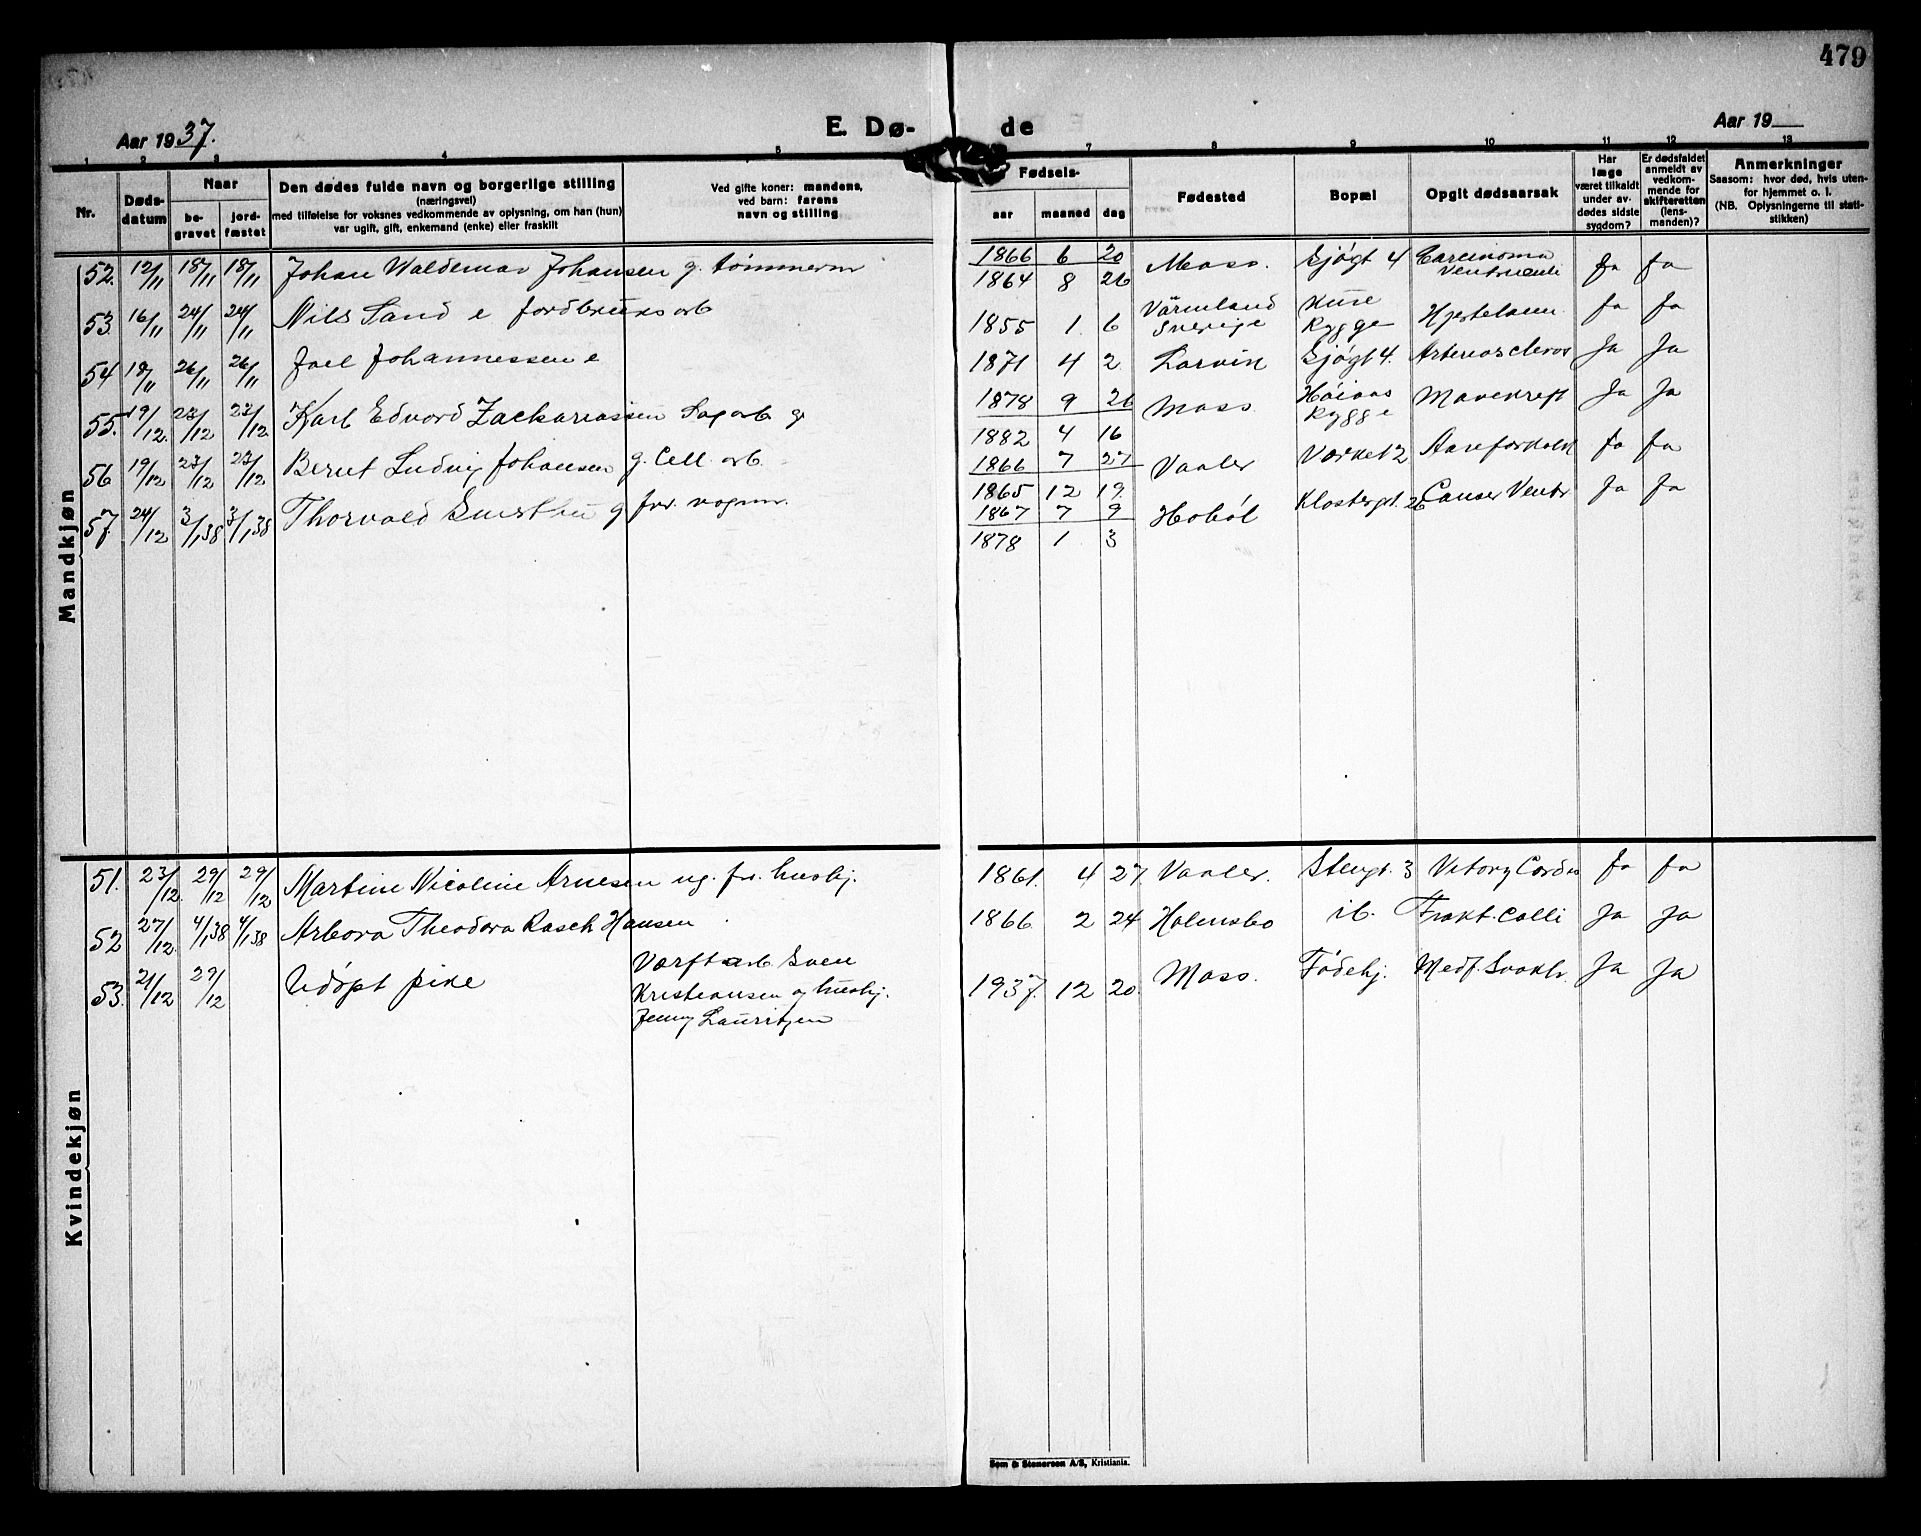 479
Aar 1937.
E. Dø-
de
Aar 19
1 2 3 4 5 7 8 9 10 11 12 13
Nr.
Døds-
datum
Naar
be-
gravet
jord-
fæstet
Den dødes fulde navn og borgerlige stilling
(næringsvei)
med tilføielse for voksnes vedkommende av oplysning, om han (hun)
var ugift, gift, enkemand (enke) eller fraskilt
Ved gifte koner: mandens,
ved barn: farens
navn og stilling
Fødsels-
aar maaned dag
Fødested
Bopæl
Opgit dødsaarsak
Har
læge
været tilkaldt
under av-
dødes sidste
sygdom?
Er dødsfaldet
anmeldt av
vedkom-
mende for
skifteretten
(lens-
manden)?
Anmerkninger
Saasom: hvor død, hvis uten-
for hjemmet o. l.
(NB. Oplysningerne til stati-
stikken)
Mandkjøn
52. 12/11 18/11 18/11 Johan Waldemar Johansen g. tømmerm 1866 6 20 Moss. Sjøgt 4 Carcinoma Ja Ja
1864 8 26
53. 16/11 24/11 24/11 Nils Sand e jordbruksarb 1855 1. 6 Värmland Sverige Rygge Ja Ja
54 18/11 26/11 26/11 Joel Johannessen e 1871 4 2 Larvik Sjøgt 4. Arterioscleros Ja Ja
55. 19/12. 23/12 23/12 Karl Edvard Zackariassen Sagarb g 1878 9 26 Moss. Høiaas Rygge Mavekreft Ja Ja
1882 4 16
56 19/12 23/12 23/12 Bernt Ludvig Johansen g. Cell. arb. 1866 7 27 Vaaler Værket 2 Aareforkalk Ja Ja
1865 12 19.
57. 24/12 3/1 38 3/1 38 Thorvald g fhv. vognm. 1867 7 9 Hobøl Klostergt. 26 Cancer Ventr Ja Ja
1878 1 3
Kvindekjøn
51. 23/12. 29/12 29/12 Martine Nicoline Arnesen ug. fhv. husbj. 1861. 4 27. Vaaler. Stengt. 3 Vitory Cordis Ja Ja
52 27/12. 4/1 38 4/1 38 Arbora Theodora Rasch Hansen 1866. 2 24 Holmsbo ib. Frakt. Colli Ja Ja
53. 21/12 29/12 Udøpt pike Værftsarb. Sven
Kristiansen og husbj.
Jenny Lauritzen 1937. 12 20. Moss. Fødehj. Medf. Svakh. Ja Ja
Søm & Stenersen A/S, Kristiania.